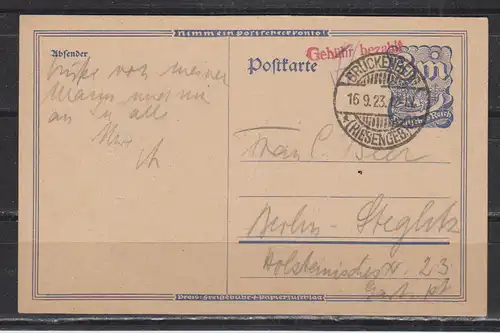 Nimm ein Postscheckkonto!
Absender
Grüße von meiner
Mama und sie
an alle
Postkarte
Gebühr bezahlt
BRÜCKENBERG
16.9.23.
(RIESENGEB)
Reich
Frau C. Beer
Berlin-Steglitz
Holsteinischestr. 23
Preis: Freigebühr + Papierzuschlag